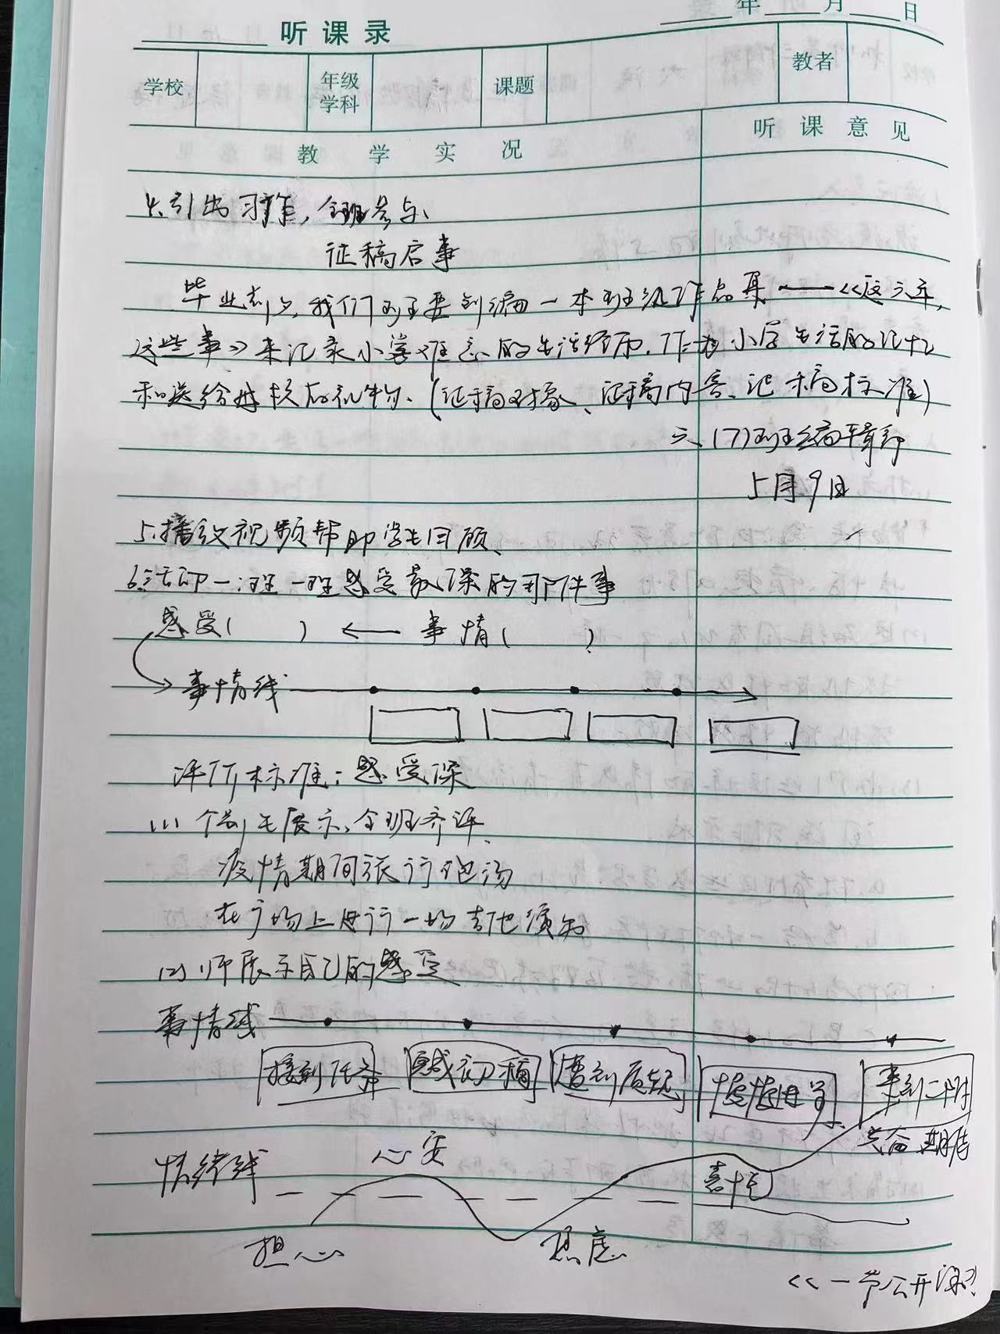 年 月 日
听课录
学校 年级学科 课题 教者
教学实况 听课意见
4.引出习作,全班参与、
征稿启事
毕业前夕,我们班要创编一本班级作品集——《这六年,
这些事》来记录小学难忘的生活经历.作为小学生活的记忆
和送给母校的礼物.(征稿对象、征稿内容、记稿标准)
六(7)班
5月9日
5.播放视频帮助学生回顾、
6.活动一:理一理感受最深的那件事
感受( ) ← 事情( )
事情线
评价标准:感受深
(1)个别生展示,全班齐评.
疫情期间
在广场上进行一场吉他演
(2)师展示自己的感受
事情线
接到任务 完成初稿 遭到质疑 慢慢 来到二附
情绪线 心安 喜悦 期待
担心 焦虑
《一节公开课》